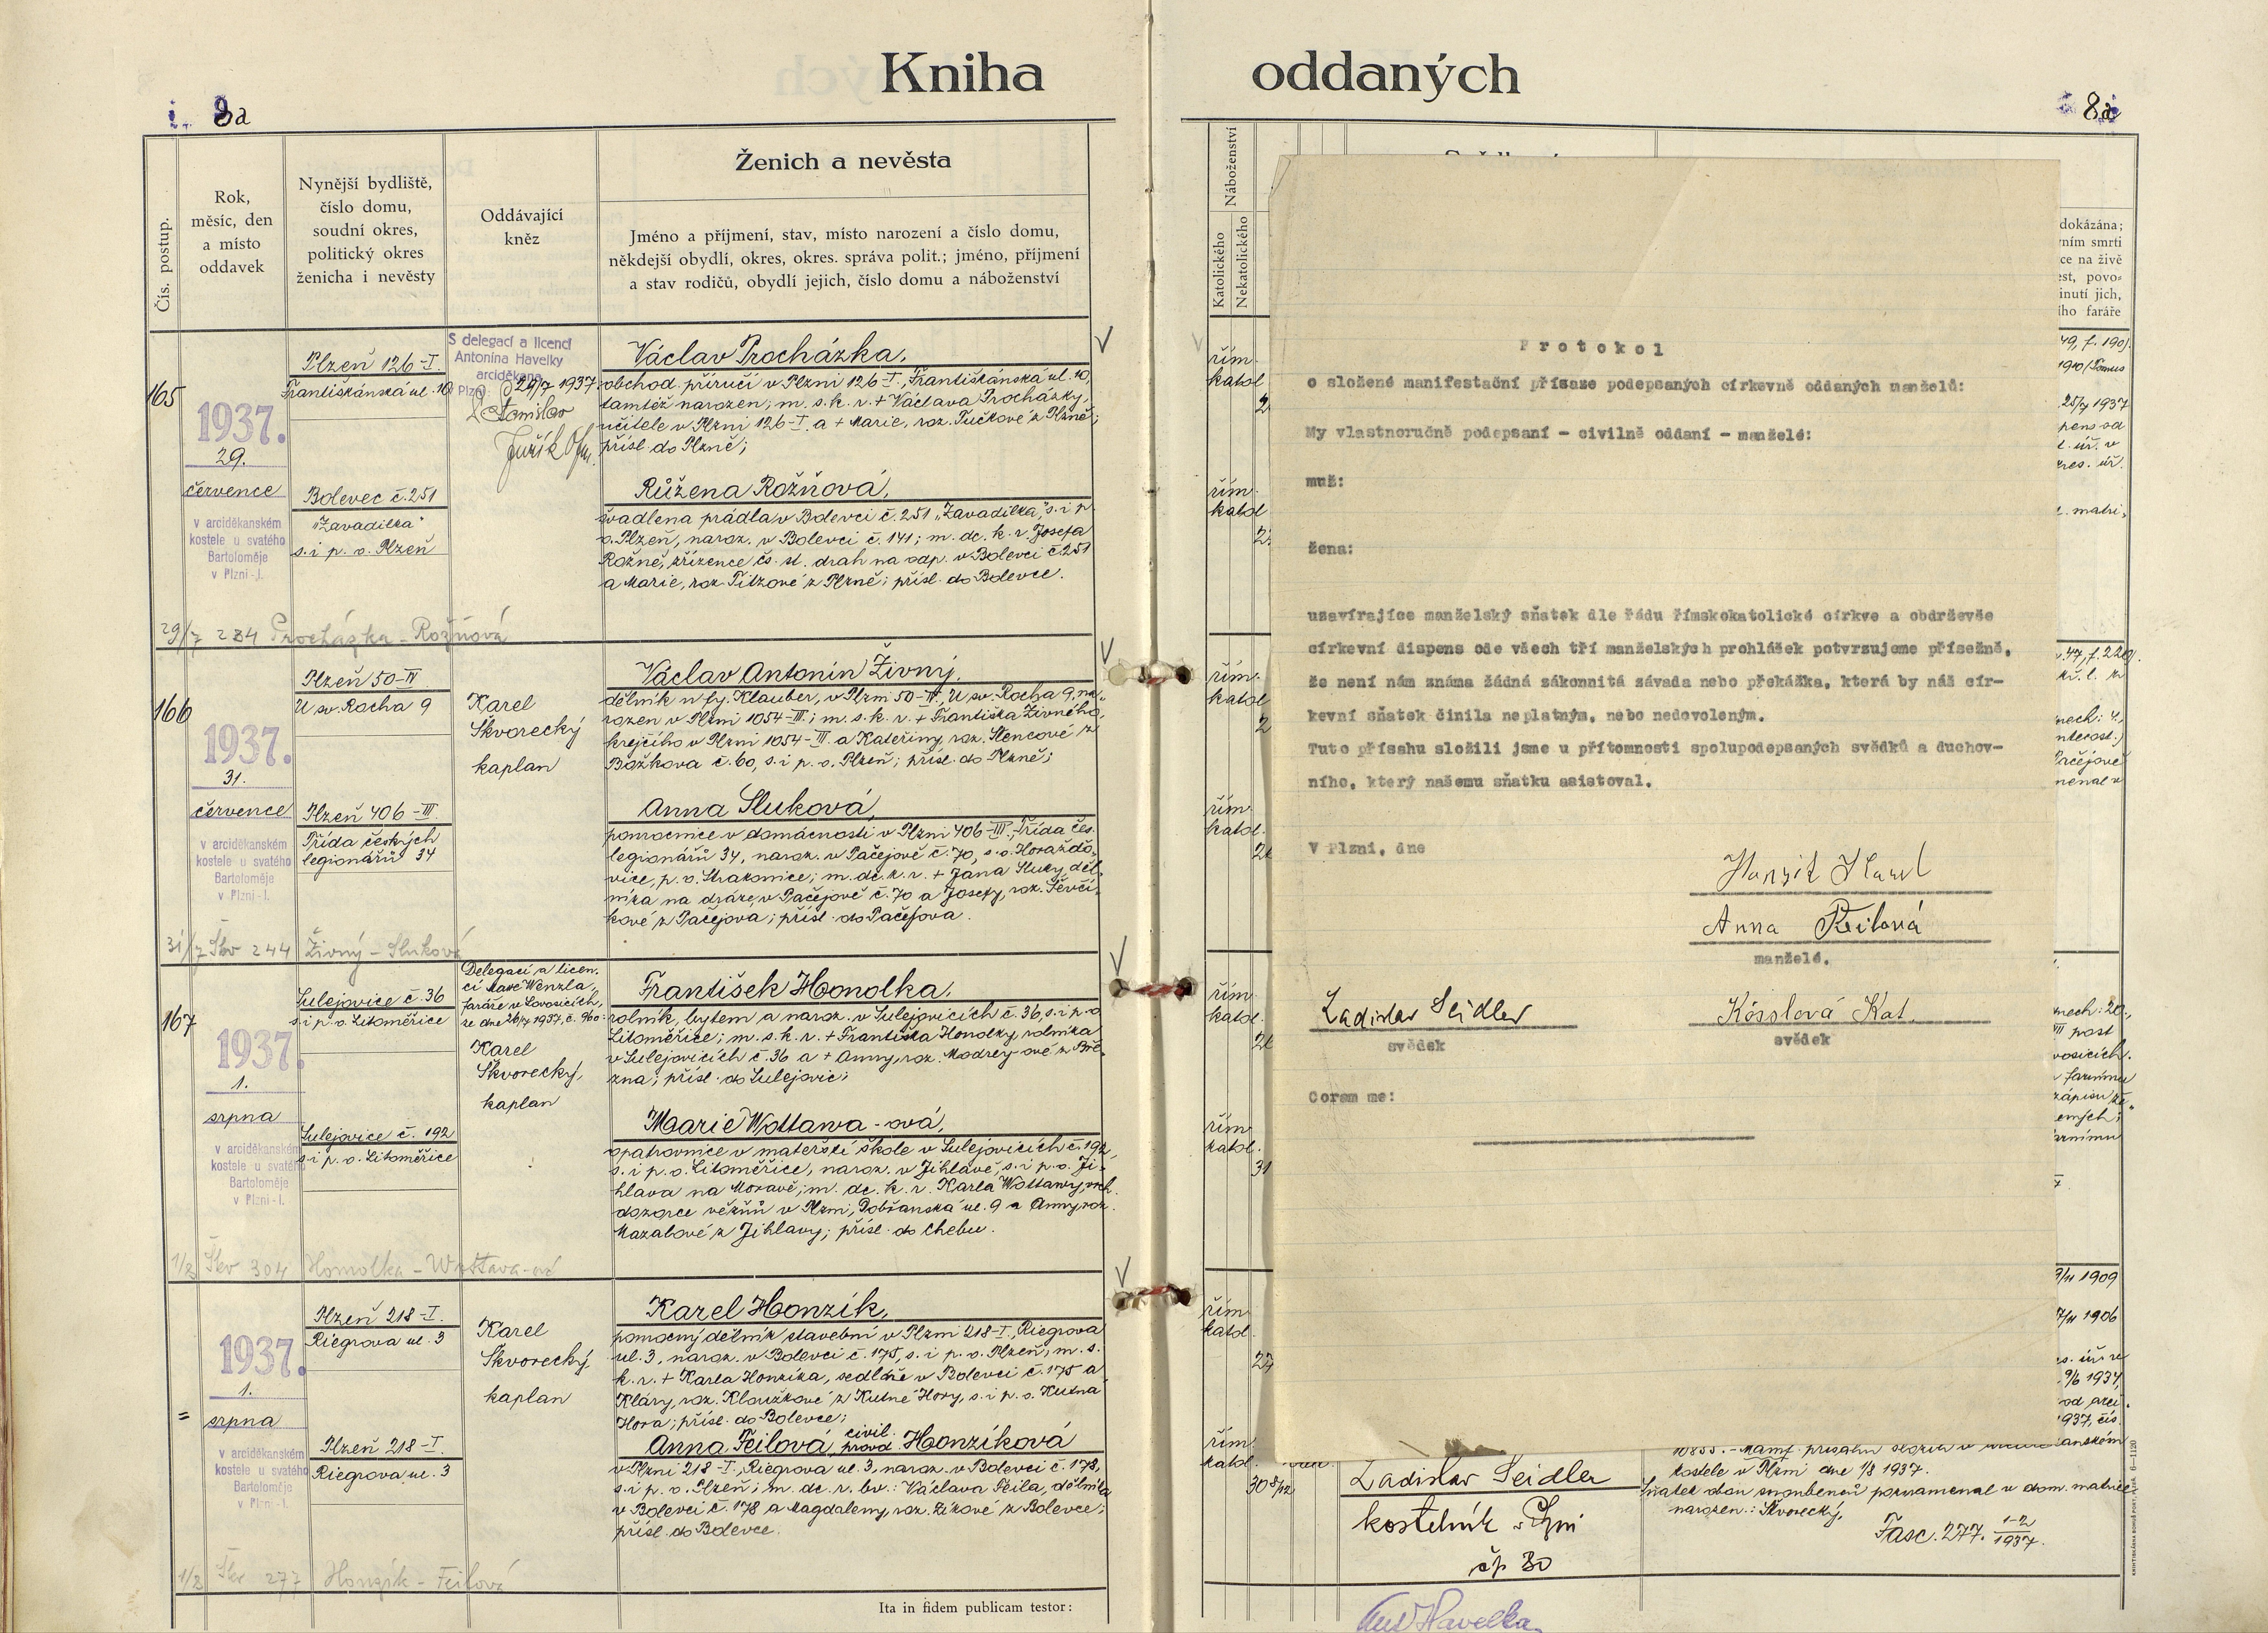 Kniha oddaných
8a
8a
Čís. postup.
Rok,
měsíc, den
a místo
oddavek
Nynější bydliště,
číslo domu,
soudní okres,
politický okres
ženicha i nevěsty
Oddávající
kněz
Ženich a nevěsta
Jméno a příjmení, stav, místo narození a číslo domu,
někdejší obydlí, okres, okres. správa polit.; jméno, příjmení
a stav rodičů, obydlí jejich, číslo domu a náboženství
Náboženství
Katolického
Nekatolického
165
1937.
29.
července
v arciděkanském
kostele u svatého
Bartoloměje
v Plzni-I.
Plzeň 126-I.
Františkánská ul. 10
Bolevec č. 251
"Zavadilka"
s. i p. o. Plzeň
S delegací a licencí
Antonína Havelky
arciděkana
29/7 1937
Stanislav
Juřík
Václav Procházka,
obchod. příručí v Plzni 126-I., Františkánská ul. 10,
tamtéž narozen; m. s. k. r. + Václava Procházky,
učitele v Plzni 126-I. a + Marie, roz. Tučkové z Plzně;
přísl. do Plzně;
Růžena Rožňová,
švadlena prádla v Bolevci č. 251 "Zavadilka", s. i p.
o. Plzeň, naroz. v Bolevci č. 141; m. dc. k. r. Josefa
Rožně, zřízence čs. st. drah na odp. v Bolevci č. 251
a Marie, roz. Pilzové z Plzně; přísl. do Bolevce.
29/7 284 Procházka - Rožňová
166
1937.
31.
července
v arciděkanském
kostele u svatého
Bartoloměje
v Plzni-I.
Plzeň 50-IV
U sv. Rocha 9
Plzeň 406-III.
Třída českých
legionářů 34
Karel
Škvorecký
kaplan
Václav Antonín Živný,
dělník u fy. Klauber, v Plzni 50-IV., U sv. Rocha 9, na-
rozen v Plzni 1054-III; m. s. k. r. + Františka Živného,
krejčího v Plzni 1054-III a Kateřiny, roz. Stencové z
Božkova č. 60, s. i p. o. Plzeň; přísl. do Plzně;
Anna Sluková,
pomocnice v domácnosti v Plzni 406-III., Třída čes.
legionářů 34, naroz. v Pačejově č. 70, s. o. Horažďo-
vice, p. o. Strakonice; m. dc. k. r. + Jana Sluky, děl-
níka na dráze, v Pačejově č. 70 a Josefy, roz. Ševčí-
kové z Pačejova; přísl. do Pačejova.
31/7 Škv 244 Živný - Sluková
167
1937.
1.
srpna
v arciděkanském
kostele u svatého
Bartoloměje
v Plzni-I.
Sulejovice č. 36
s. i p. o. Litoměřice
Sulejovice č. 192
s. i p. o. Litoměřice
Delegací a licen-
cí Maxe Wenzla,
faráře v Lovosicích,
ze dne 26/7 1937, č. 960:
Karel
Škvorecký,
kaplan
František Homolka,
rolník, bytem a naroz. v Sulejovicích č. 36, s. i p. o
Litoměřice; m. s. k. r. + Františka Homolky, rolníka
v Sulejovicích č. 36 a + Anny, roz. Modrey-ové z Bře-
zna; přísl. do Sulejovic;
Marie Wottawa-ová,
opatrovnice v mateřské škole v Sulejovicích č. 192,
s. i p. o. Litoměřice, naroz. v Jihlavě, s. i p. o. Ji-
hlava na Moravě; m. dc. k. r. Karla Wottawy, vrch.
dozorce věžňů v Plzni, Dobřanská ul. 9 a Anny, roz.
Mazalové z Jihlavy; přísl. do Chebu.
1/8 Škv 304 Homolka - Wottava-ová
=
1937.
1.
srpna
v arciděkanském
kostele u svatého
Bartoloměje
v Plzni-I.
Plzeň 218-I.
Riegrova ul. 3
Plzeň 218-I.
Riegrova ul. 3
Karel
Škvorecký,
kaplan
Karel Honzík,
pomocný dělník stavební v Plzni 218-I., Riegrova
ul. 3, naroz. v Bolevci č. 175, s. i p. o. Plzeň; m. s.
k. r. + Karla Honzíka, sedláře v Bolevci č. 175 a
Kláry, roz. Kloužkové z Kutné Hory, s. i p. o. Kutná
Hora; přísl. do Bolevce;
Anna Feilová civil. provd. Honzíková
v Plzni 218-I., Riegrova ul. 3, naroz. v Bolevci č. 178,
s. i p. o. Plzeň; m. dc. r. bv.: Václava Feila, dělníka
v Bolevci č. 178 a Magdaleny, roz. Zikové z Bolevce;
přísl. do Bolevce.
1/8 Škv 277 Honzík - Feilová
Ita in fidem publicam testor:
řím.
katol
řím.
katol
řím.
katol
řím.
katol.
řím.
katol.
řím.
katol.
řím.
katol.
řím.
katol.
Protokol
o složené manifestační přísaze podepsaných církevně oddaných manželů:
My vlastnoručně podepsaní - civilně oddaní - manželé:
muž:
žena:
uzavírajíce manželský sňatek dle řádu římskokatolické církve a obdrževše
církevní dispens ode všech tří manželských prohlášek potvrzujeme přísežně,
že není nám známa žádná zákonnitá závada nebo překážka, která by náš cír-
kevní sňatek činila neplatným, nebo nedovoleným.
Tuto přísahu složili jsme u přítomnosti spolupodepsaných svědků a duchov-
ního, který našemu sňatku asistoval.
V Plzni, dne
Honzík Karel
Anna Feilová
manželé.
Ladislav Seidler
svědek
Kósslová Kat.
svědek
Coram me:
dokázána;
ním smrti
ce na živě
est, povo-
inutí jich,
ího faráře
25/7 1937
9/11 1909
7/11 1906
Ladislav Seidler
kostelník v Plzni
čp 30
10855. - Manif. přísahu složili v
kostele v Plzni dne 1/8 1937.
Sňatek obou snoubenců poznamenal v dom. matrice
narozen.: Škvorecký,
Fasc. 277. 1-2/1937.
Ant Havelka